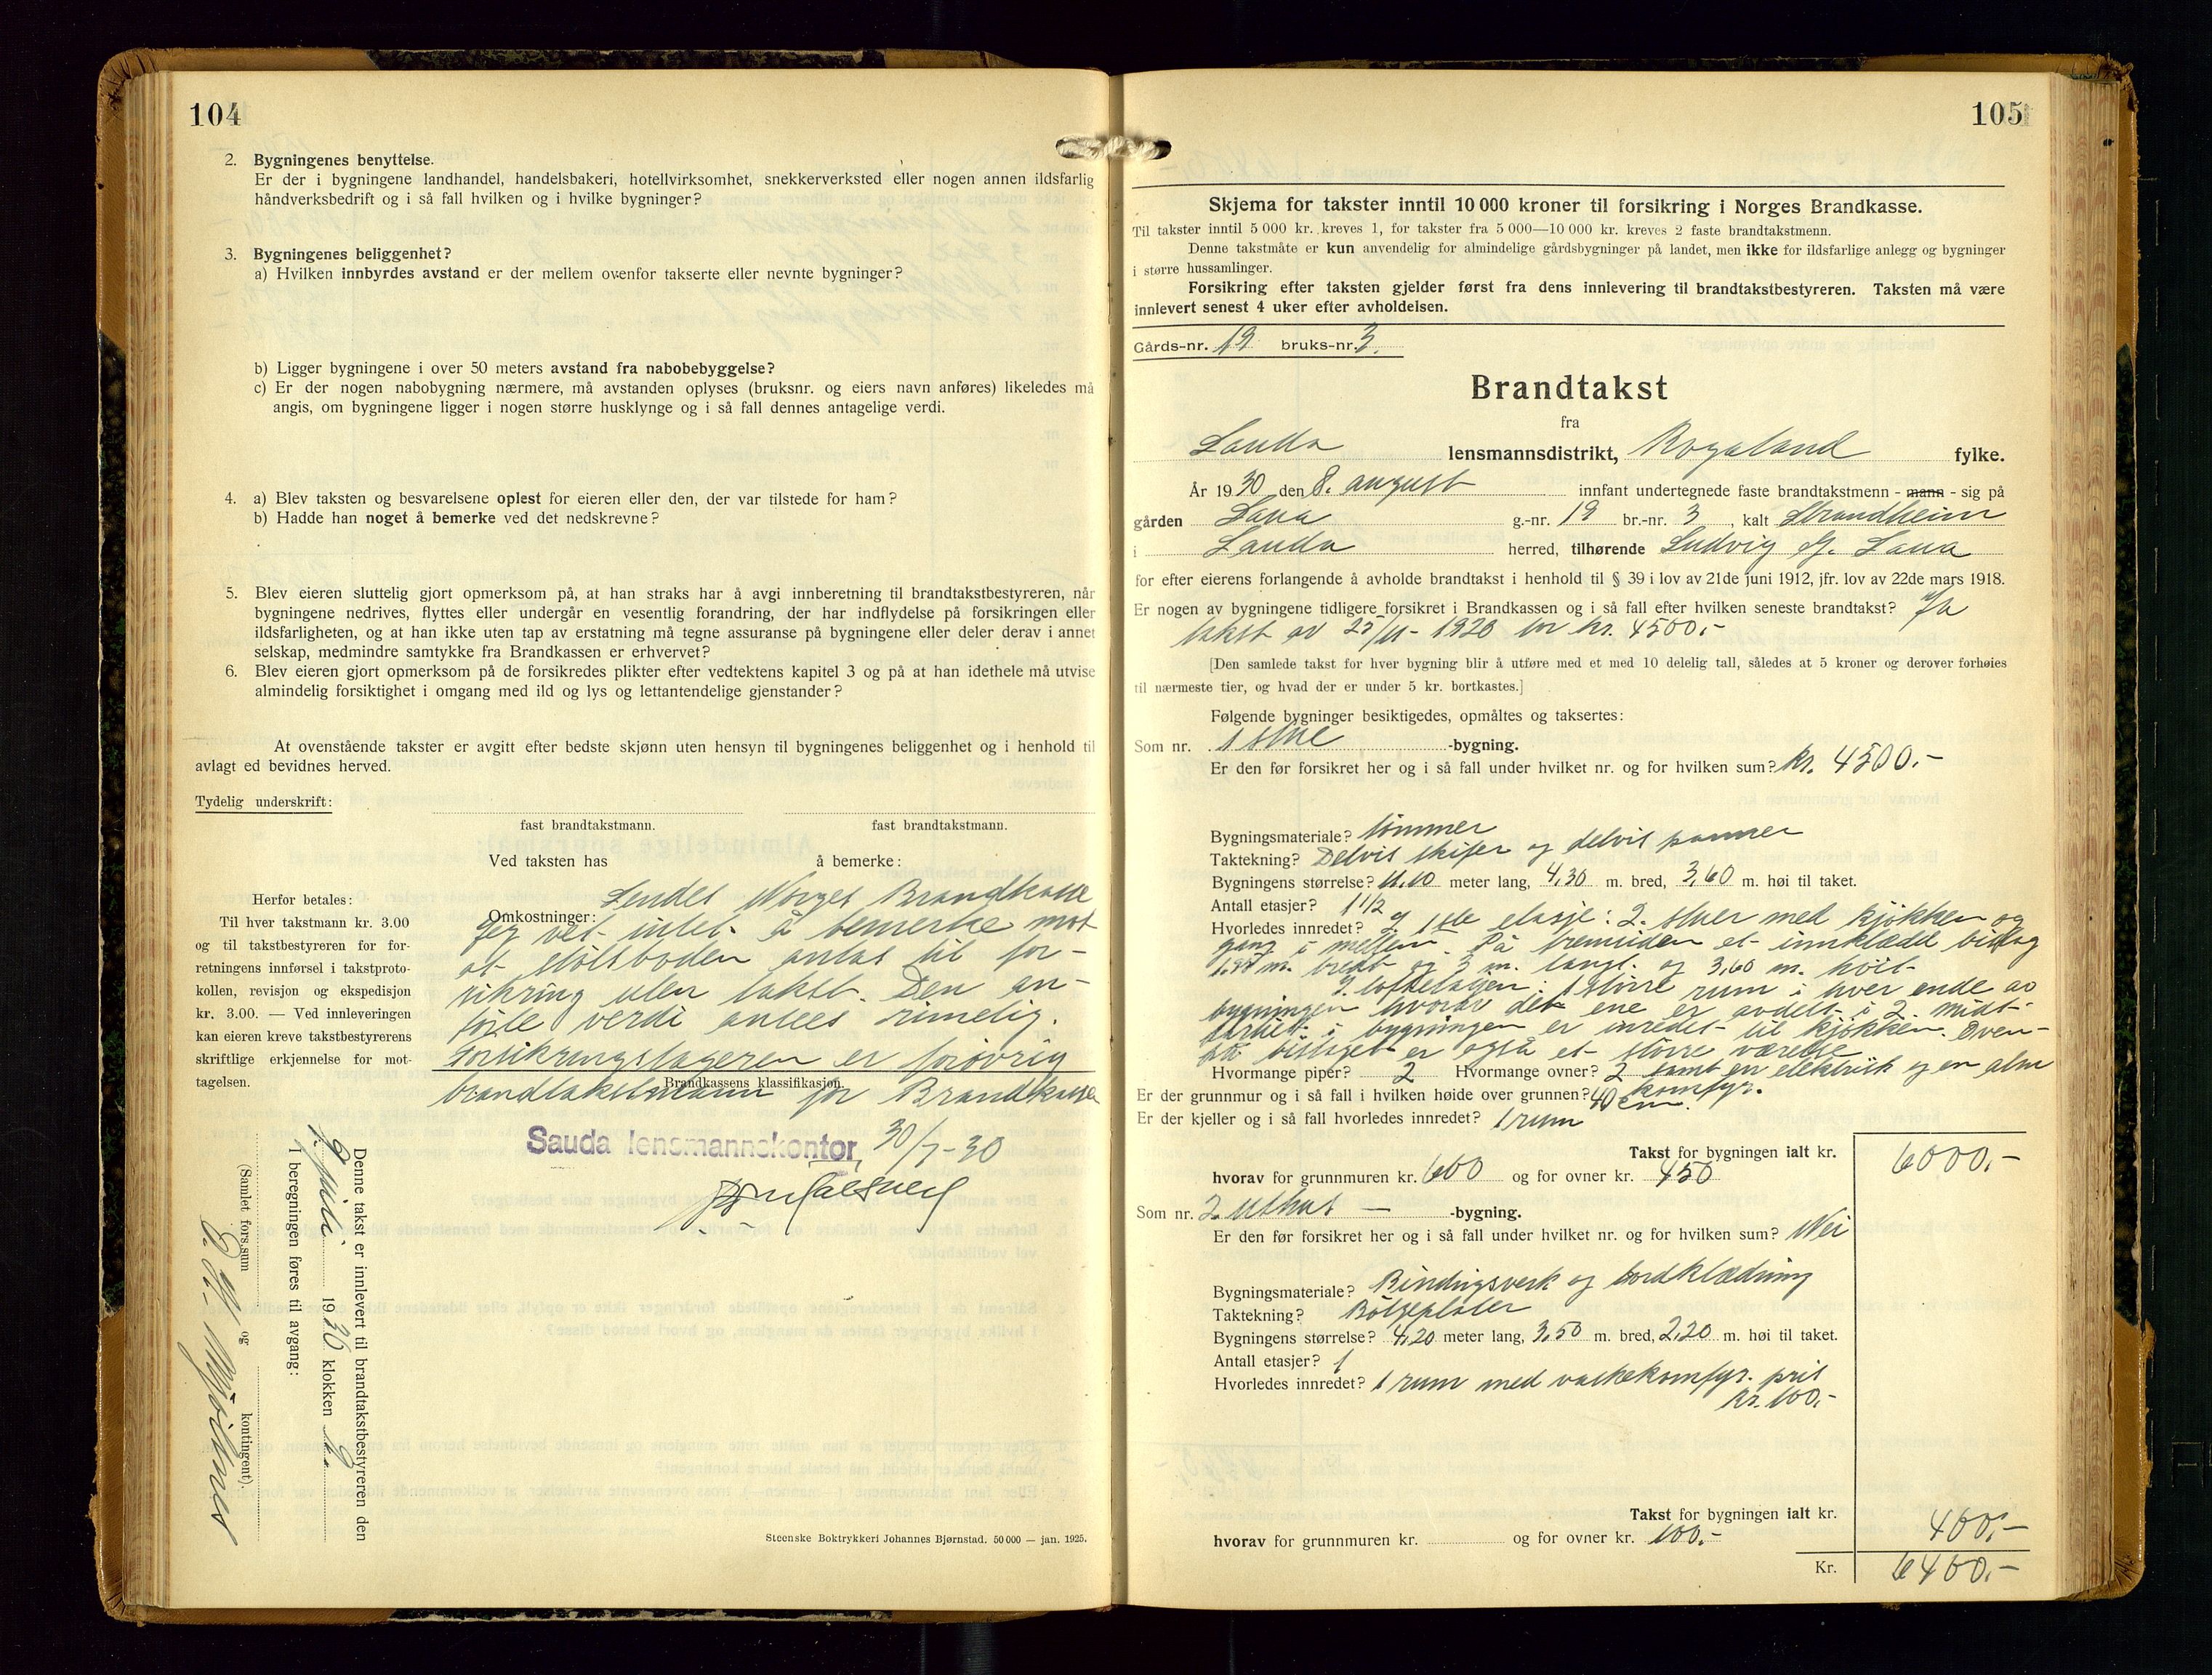 104
2. Bygningenes benyttelse.
Er der i bygningene landhandel, handelsbakeri, hotellvirksomhet, snekkerverksted eller nogen annen ildsfarlig
håndverksbedrift og i så fall hvilken og i hvilke bygninger?
3. Bygningenes beliggenhet?
a) Hvilken innbyrdes avstand er der mellem ovenfor takserte eller nevnte bygninger?
b) Ligger bygningene i over 50 meters avstand fra nabobebyggelse?
c) Er der nogen nabobygning nærmere, må avstanden oplyses (bruksnr. og eiers navn anføres) likeledes må
angis, om bygningene ligger i nogen større husklynge og i så fall dennes antagelige verdi.
4. a) Blev taksten og besvarelsene oplest for eieren eller den, der var tilstede for ham?
b) Hadde han noget å bemerke ved det nedskrevne?
5. Blev eieren sluttelig gjort opmerksom på, at han straks har å avgi innberetning til brandtakstbestyreren, når
bygningene nedrives, flyttes eller undergår en vesentlig forandring, der har indflydelse på forsikringen eller
ildsfarligheten, og at han ikke uten tap av erstatning må tegne assuranse på bygningene eller deler derav i annet
selskap, medmindre samtykke fra Brandkassen er erhvervet?
6. Blev eieren gjort opmerksom på de forsikredes plikter efter vedtektens kapitel 3 og på at han idethele må utvise
almindelig forsiktighet i omgang med ild og lys og lettantendelige gjenstander?
At ovenstående takster er avgitt efter bedste skjønn uten hensyn til bygningenes beliggenhet og i henhold til
avlagt ed bevidnes herved.
Tydelig underskrift:
fast brandtakstmann. fast brandtakstmann.
Ved taksten has å bemerke:
Sendes Norges Brandkasse
Omkostninger:
Jeg vet intet å bemerke mot
at stølsboden antas til for-
sikring uten takst. Den an-
førte verdi ansees rimelig.
Forsikringstageren er forøvrig
Brandkassens klassifikasjon.
brandtakstmann for Brandkassen
Sauda lensmannskontor, 30/7-30
Herfor betales:
Til hver takstmann kr. 3.00
og til takstbestyreren for for-
retningens innførsel i takstproto-
kollen, revisjon og ekspedisjon
kr. 3.00. — Ved innleveringen
kan eieren kreve takstbestyrerens
skriftlige erkjennelse for mot-
tagelsen.
Denne takst er innlevert til brandtakstbestyreren den
juli 1930 klokken
I beregningen føres til avgang:
(Samlet fors.sum og kontingent).
Steenske Boktrykkeri Johannes Bjørnstad. 50 000 — jan. 1925.
105
Skjema for takster inntil 10 000 kroner til forsikring i Norges Brandkasse.
Til takster inntil 5 000 kr. kreves 1, for takster fra 5 000—10 000 kr. kreves 2 faste brandtakstmenn.
Denne takstmåte er kun anvendelig for almindelige gårdsbygninger på landet, men ikke for ildsfarlige anlegg og bygninger
i større hussamlinger.
Forsikring efter taksten gjelder først fra dens innlevering til brandtakstbestyreren. Taksten må være
innlevert senest 4 uker efter avholdelsen.
Gårds-nr. 19 bruks-nr. 3.
Brandtakst
fra
Sauda lensmannsdistrikt, Rogaland fylke.
År 1930 den 8. august innfant undertegnede faste brandtakstmenn - mann - sig på
gården Saua g.-nr. 19 br.-nr. 3, kalt Strandheim
i Sauda herred, tilhørende Ludvig G. Saua
for efter eierens forlangende å avholde brandtakst i henhold til § 39 i lov av 21de juni 1912, jfr. lov av 22de mars 1918.
Er nogen av bygningene tidligere forsikret i Brandkassen og i så fall efter hvilken seneste brandtakst? Ja
takst av 25/11-1920 for kr. 4500.-
[Den samlede takst for hver bygning blir å utføre med et med 10 delelig tall, således at 5 kroner og derover forhøies
til nærmeste tier, og hvad der er under 5 kr. bortkastes.]
Følgende bygninger besiktigedes, opmåltes og taksertes:
Som nr. 1 stue -bygning.
Er den før forsikret her og i så fall under hvilket nr. og for hvilken sum? kr. 4500.-
Bygningsmateriale? tømmer
Taktekning? Delvis skifer og delvis panner
Bygningens størrelse? 11.10 meter lang, 4,30 m. bred, 3,60 m. høi til taket.
Antall etasjer? 1 1/2
Hvorledes innredet? I 1ste etasje: 2. stuer med kjøkken og
gang i mellem. På fremsiden et innklædd bislag
m. bredt og 3 m. langt og 3,60 m. høit-
I loftetagen: 1 større rum i hver ende av
bygningen hvorav det ene er avdelt i 2. midt-
partiet i bygningen er inredet til kjøkken. Oven-
på bislaget er også et større værelse
Hvormange piper? 2 Hvormange ovner? 2 samt en elektrisk og en alm
komfyr.
Er der grunnmur og i så fall i hvilken høide over grunnen? 40 cm.
Er der kjeller og i så fall hvorledes innredet? 1 rum
Takst for bygningen ialt kr. 6000.-
hvorav for grunnmuren kr. 600 og for ovner kr. 450
Som nr. 2. uthus — -bygning.
Er den før forsikret her og i så fall under hvilket nr. og for hvilken sum? Nei
Bygningsmateriale? Bindingsverk og bordklædning
Taktekning? Bølgeplater
Bygningens størrelse? 4,20 meter lang, 3,50 m. bred, 2,20 m. høi til taket.
Antall etasjer? 1
Hvorledes innredet? 1 rum med vaskekomfyr. pris
kr. 100.-
Takst for bygningen ialt kr. 400.-
hvorav for grunnmuren kr. og for ovner kr. 100.-
Kr. 6400.-